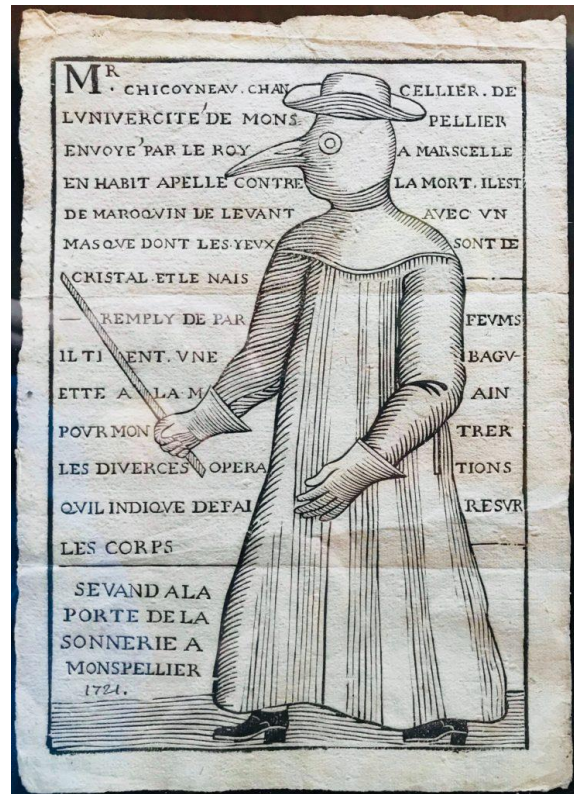 MR. CHICOYNEAV. CHANCELLIER. DE
LVNIVERCITÉ DE MONSPELLIER
ENVOYÉ PAR LE ROY A MARSCELLE
EN HABIT APELLÉ CONTRE LA MORT. ILEST
DE MAROQVIN DE LEVANT AVEC VN
MASQVE DONT LES. YEVX SONT DE
CRISTAL. ET LE NAIS
REMPLY DE PARFEVMS
IL TIENT. VNE BAGV-
ETTE A LA MAIN
POVR MONTRER
LES DIVERCES OPERATIONS
QVIL INDIQVE DEFAIRE SVR
LES CORPS
SEVAND ALA
PORTE DE LA
SONNERIE A
MONSPELLIER
1721.